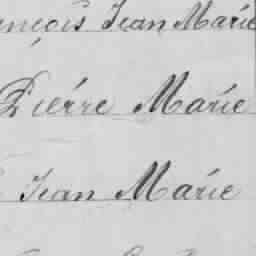 ençois Jean Marie
Pierre Marie
Jean Marie